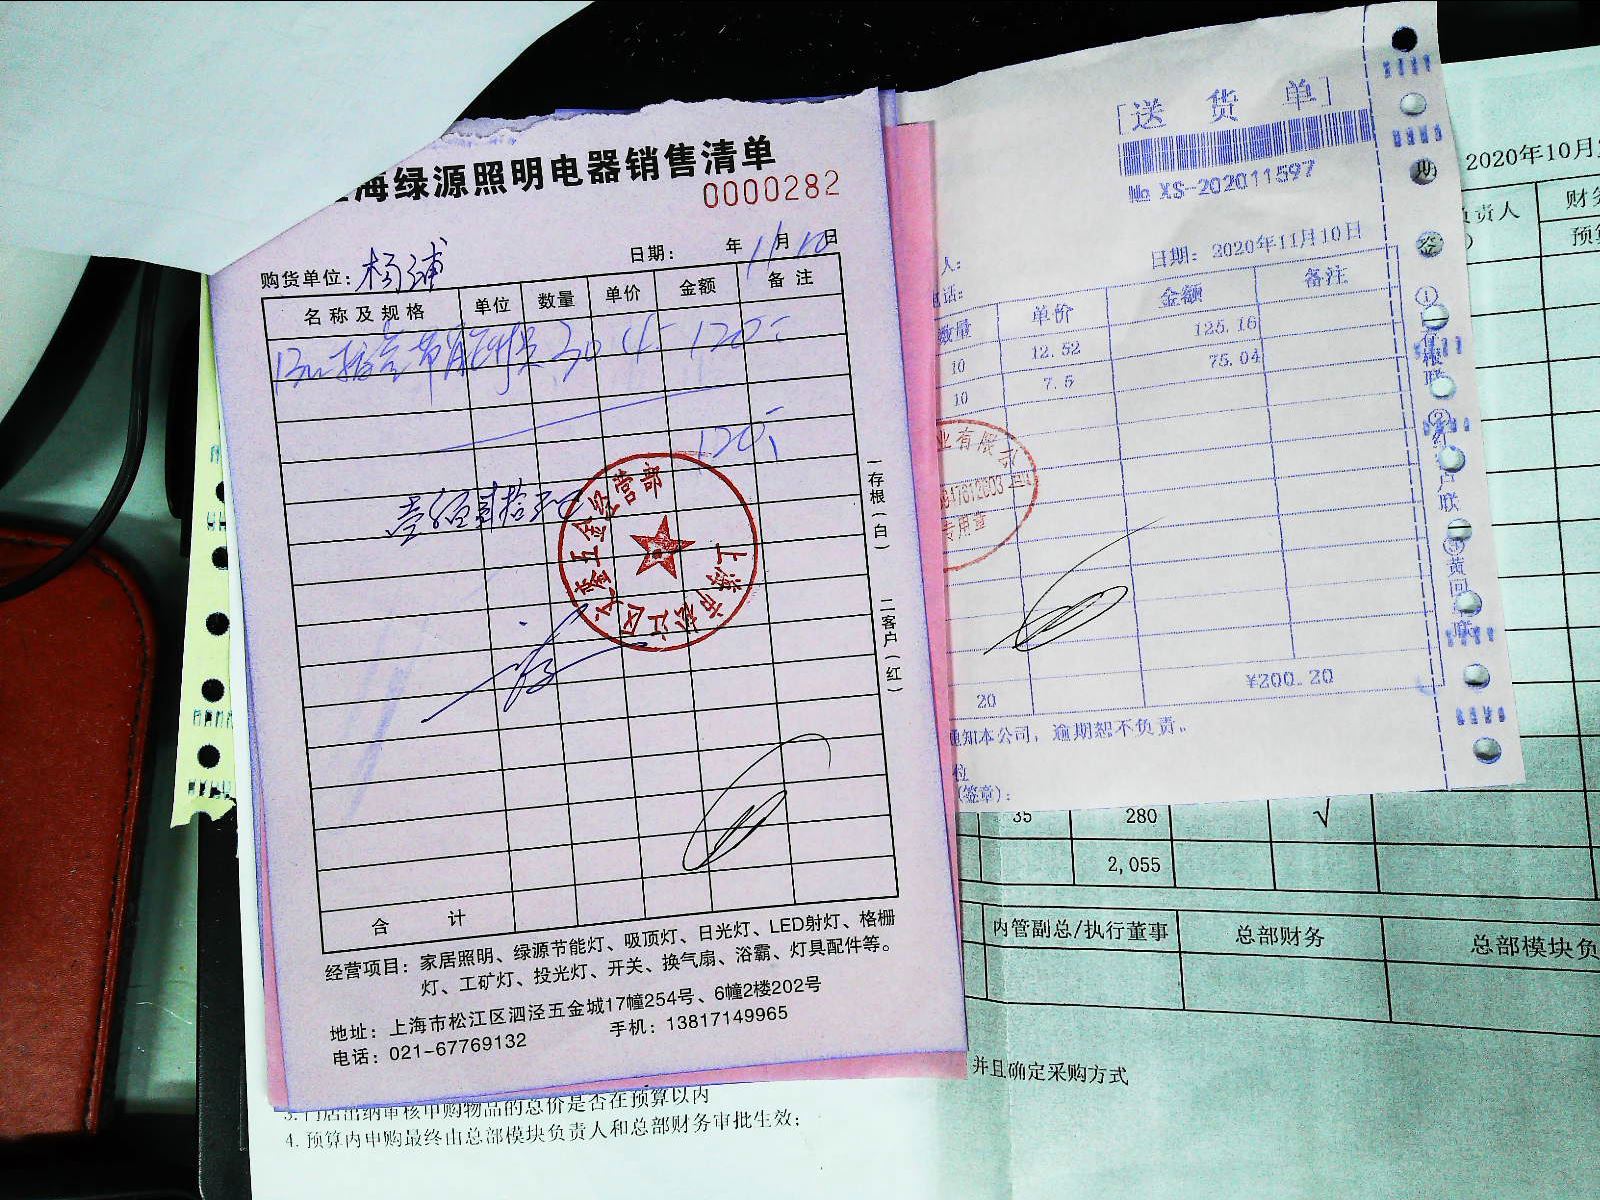 海绿源照明电器销售清单
0000282
购货单位: 杨浦
日期: 年 11月 10日
名称及规格 单位 数量 单价 金额 备注
30 4 120
120
壹佰贰拾元
上海市松江区 五金经营部
一存根(白)
二客户(红)
合 计
经营项目:家居照明、绿源节能灯、吸顶灯、日光灯、LED射灯、格栅
灯、工矿灯、投光灯、开关、换气扇、浴霸、灯具配件等。
地址:上海市松江区泗泾五金城17幢254号、6幢2楼202号
电话:021-67769132 手机:13817149965
[送 货 单]
№ XS-202011597
人:
日期: 2020年11月10日
电话:
数量 单价 金额 备注
10 12.52 125.16
10 7.5 75.04
业有限公司
专用章
20 ¥200.20
通知本公司,逾期恕不负责。
位
(签章):
①存根联
②客户联
2020年10月
负责人 财务
预算
35 280 √
2,055
内管副总/执行董事 总部财务 总部模块负
并且确定采购方式
3. 门店出纳审核申购物品的总价是否在预算以内
4. 预算内申购最终由总部模块负责人和总部财务审批生效;